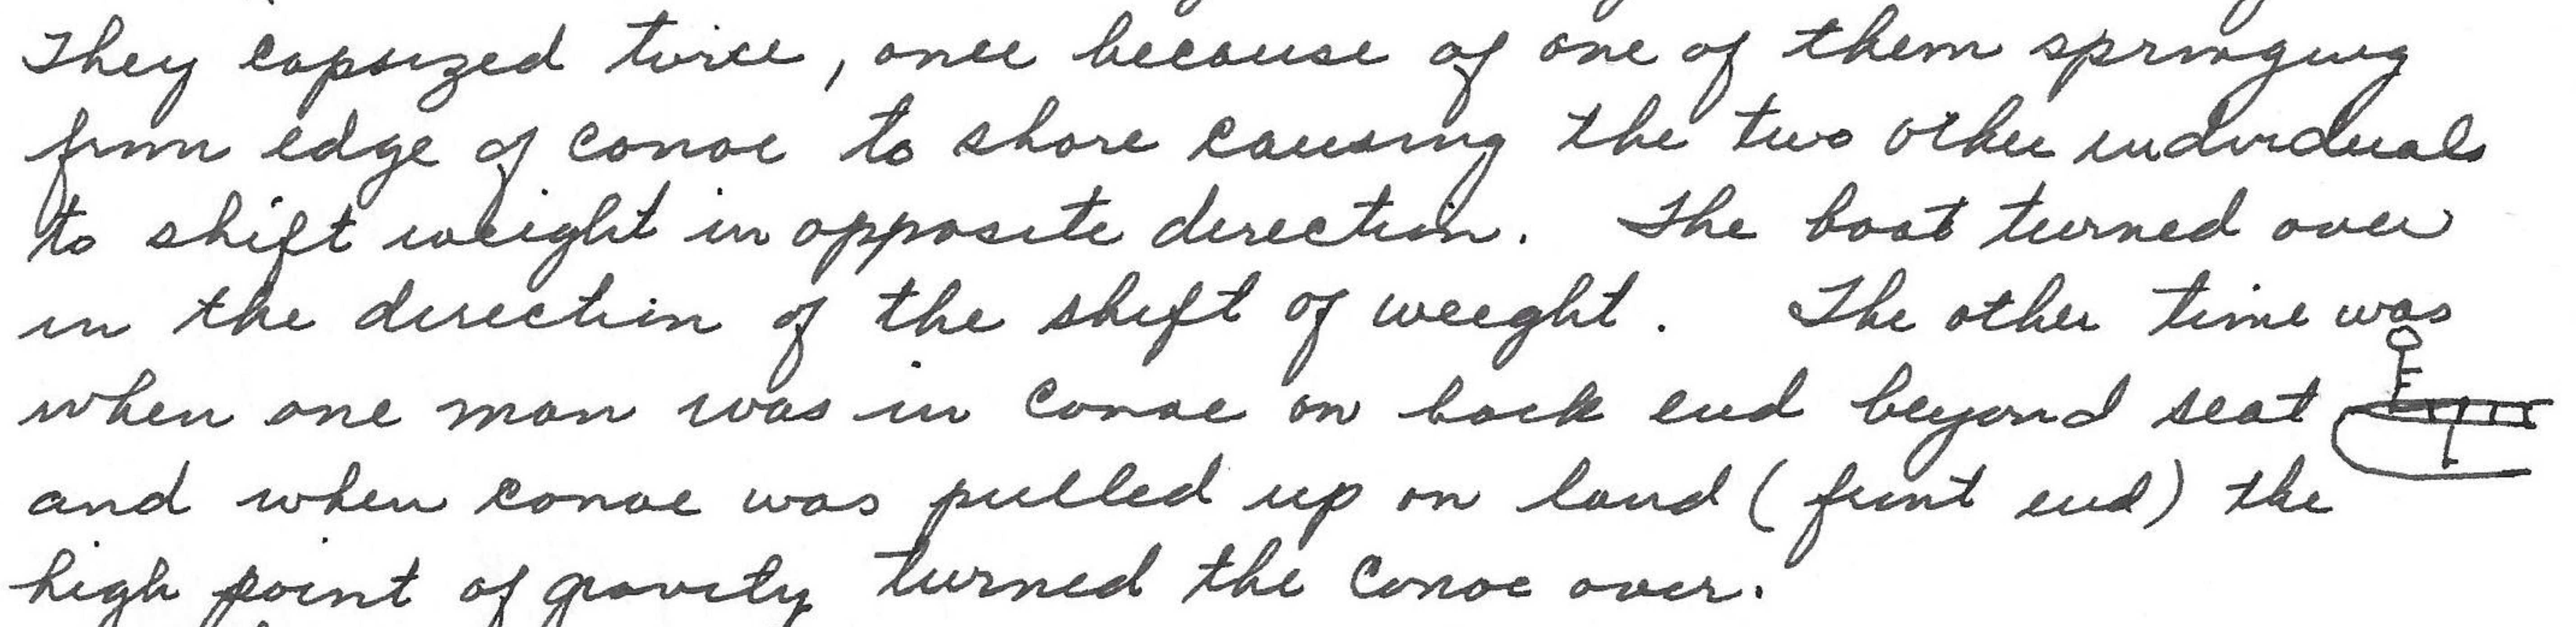 They capsized twice, once because of one of them springing
from edge of canoe to shore causing the two other individuals
to shift weight in opposite direction. The boat turned over
in the direction of the shift of weight. The other time was
when one man was in canoe on back end beyond seat
and when canoe was pulled up on land (front end) the
high point of gravity turned the canoe over.